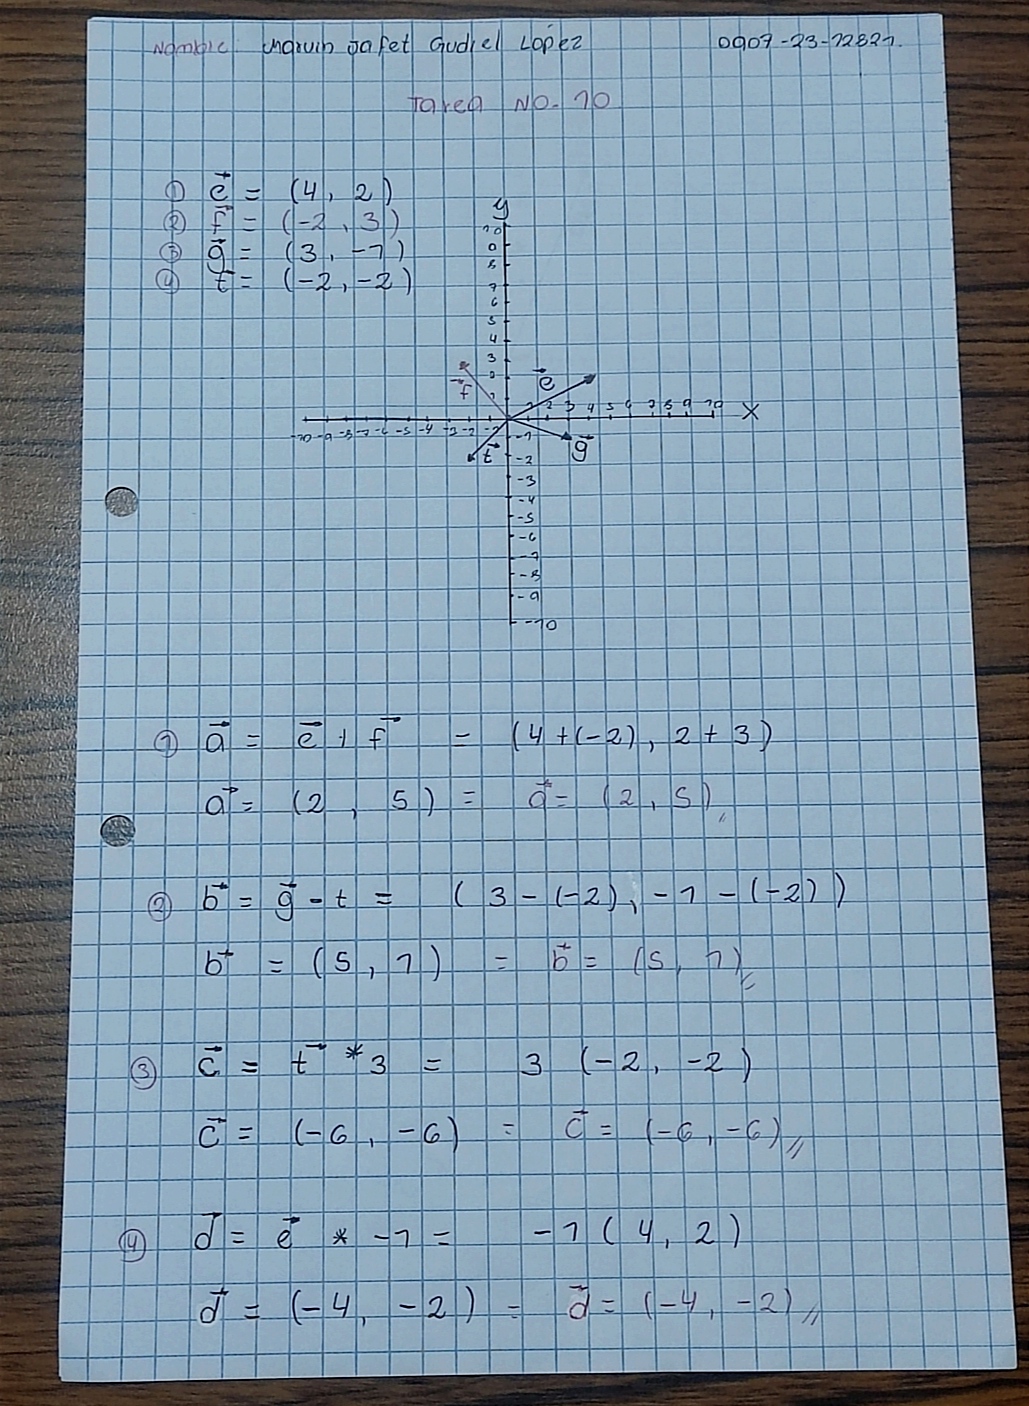 Nombre: Marvin Jafet Gudiel López 0907-23-12821.
Tarea No. 10
① e⃗ = (4, 2)
② f⃗ = (-2, 3)
③ g⃗ = (3, -1)
④ t⃗ = (-2, -2)
y
10
9
8
7
6
5
4
3
2
1
e⃗
f⃗
-10 -9 -8 -7 -6 -5 -4 -3 -2 -1 1 2 3 4 5 6 7 8 9 10 X
t⃗
g⃗
-1
-2
-3
-4
-5
-6
-7
-8
-9
-10
① a⃗ = e⃗ + f⃗ = (4+(-2), 2+3)
a⃗ = (2, 5) = a⃗ = (2, 5)//
② b⃗ = g⃗ - t = (3-(-2), -1-(-2))
b⃗ = (5, 1) = b⃗ = (5, 1)//
③ c⃗ = t⃗ * 3 = 3 (-2, -2)
c⃗ = (-6, -6) = c⃗ = (-6, -6)//
④ d⃗ = e⃗ * -1 = -1 (4, 2)
d⃗ = (-4, -2) = d⃗ = (-4, -2)//